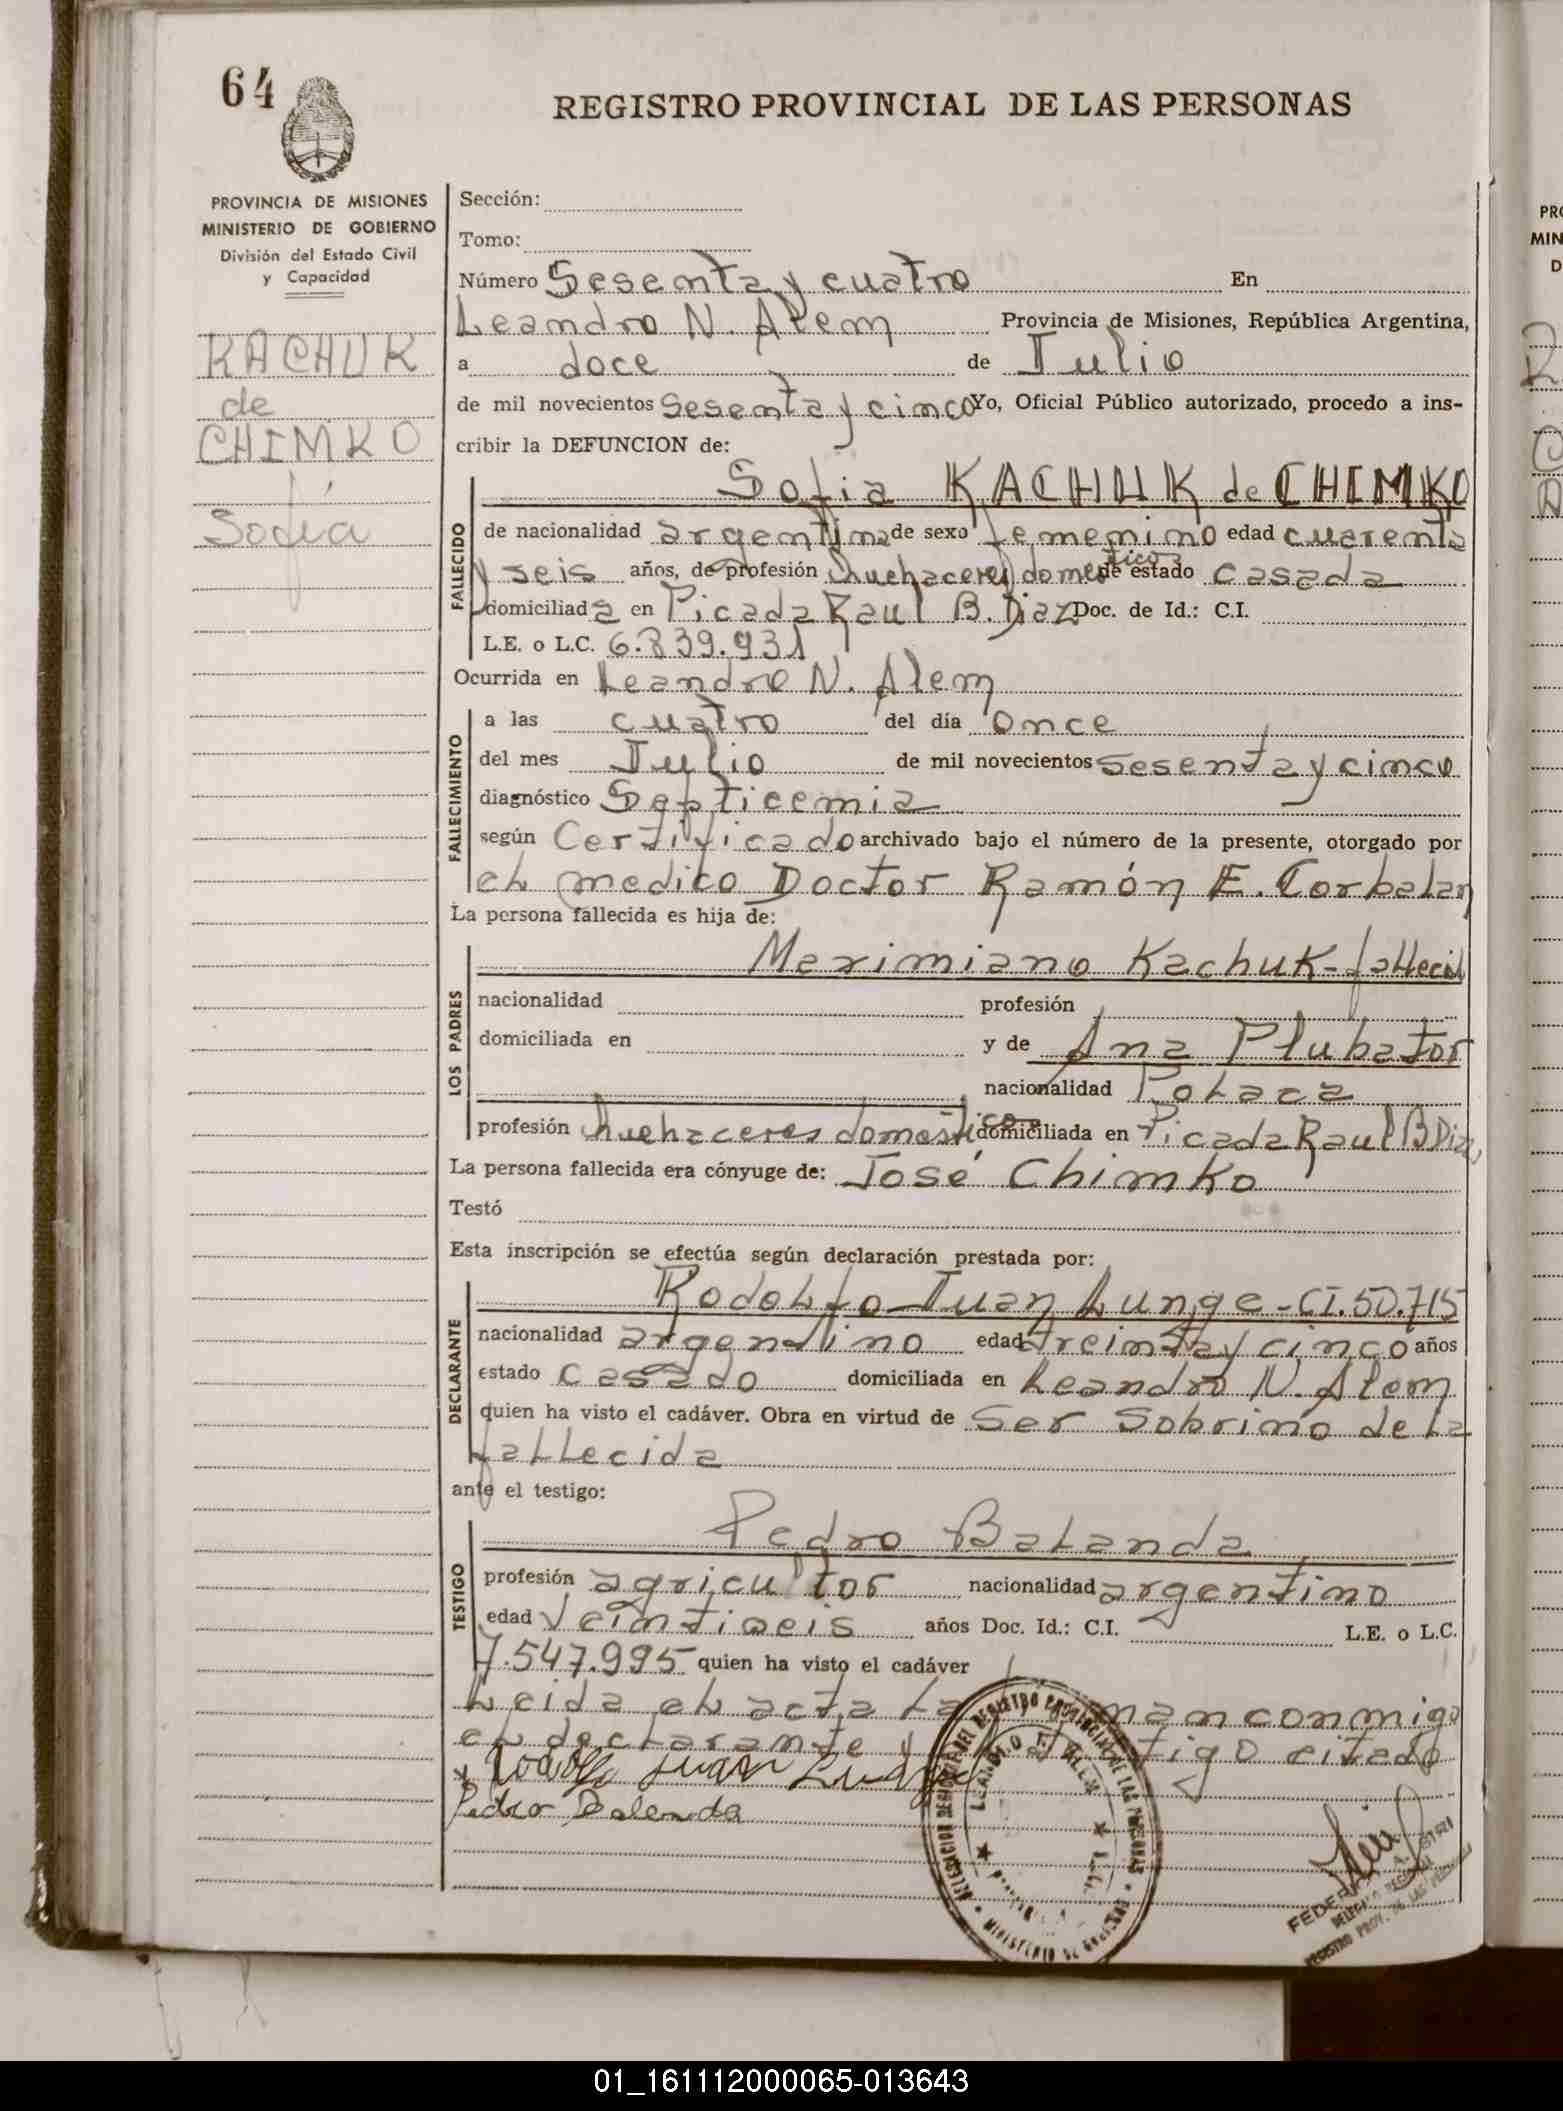 64
REGISTRO PROVINCIAL DE LAS PERSONAS
PROVINCIA DE MISIONES
MINISTERIO DE GOBIERNO
División del Estado Civil
y Capacidad
KACHUK
de
CHIMKO
Sofía
Sección:
Tomo:
Número Sesenta y cuatro En
Leandro N. Alem Provincia de Misiones, República Argentina,
a doce de Julio
de mil novecientos Sesenta y cinco Yo, Oficial Público autorizado, procedo a ins-
cribir la DEFUNCION de:
FALLECIDO
Sofia KACHUK de CHIMKO
de nacionalidad argentina de sexo femenino edad cuarenta
y seis años, de profesión quehaceres domestico de estado casada
domiciliada en Picada Raul B. Diaz Doc. de Id.: C.I.
L.E. o L.C. 6.839.931
Ocurrida en Leandro N. Alem
FALLECIMIENTO
a las cuatro del día once
del mes Julio de mil novecientos sesenta y cinco
diagnóstico Septicemia
según Certificado archivado bajo el número de la presente, otorgado por
el medico Doctor Ramón E. Corbalan
La persona fallecida es hija de:
LOS PADRES
Maximiano Kachuk - fallecid
nacionalidad profesión
domiciliada en y de Ana Plubator
nacionalidad Polaca
profesión quehaceres domestico domiciliada en Picada Raul B Diaz
La persona fallecida era cónyuge de: José Chimko
Testó
Esta inscripción se efectúa según declaración prestada por:
DECLARANTE
Rodolfo Juan Lunge - CI. 50.715
nacionalidad argentino edad treinta y cinco años
estado casado domiciliada en Leandro N. Alem
quien ha visto el cadáver. Obra en virtud de Ser Sobrino de la
fallecida
ante el testigo:
TESTIGO
Pedro Balanda
profesión agricultor nacionalidad argentino
edad Veintiseis años Doc. Id.: C.I. L.E. o L.C.
7.547.995 quien ha visto el cadáver
Leida el acta la man conmigo
el declarante y tigo citado
Rodolfo Juan Lunge
Pedro Balanda
DELEGADO REGIONAL
REGISTRO PROV. DE LAS PERSONAS
01_161112000065-013643